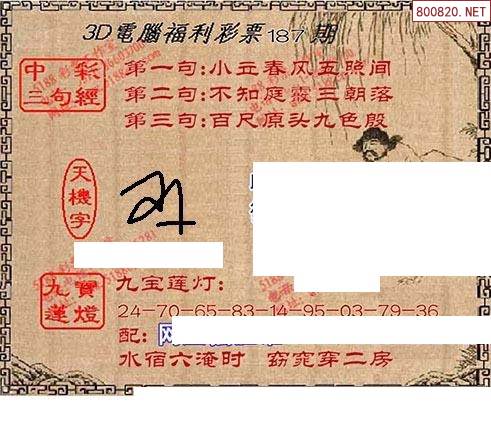 800820.NET
3D電腦福利彩票187期
中彩三句經
第一句:小立春风五照间
第二句:不知庭霰三朝落
第三句:百尺原头九色殷
天機字
九寶蓮燈
九宝莲灯:
24-70-65-83-14-95-03-79-36
配:
水宿六淹时 窈窕穿二房